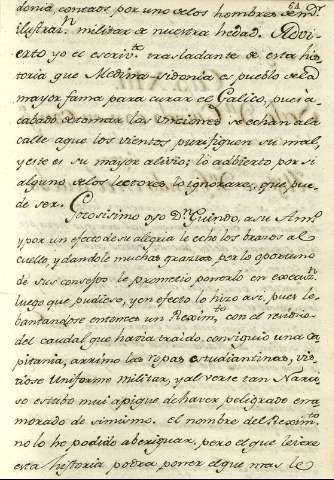 61
donia contados por uno de los hombres de mr.
ilustran. militar de nuestra hedad. Advi-
erto yo el escrivto. trasladante de esta his-
toria que Medina-sidonia es pueblo de la
mayor fama para curar el Galico, pues a
cabado de tomar las unciones se echan a la
calle a que los vientos purifiquen su mal,
y este es su mayor alivio; lo adbierto por si
alguno de los lectores lo ignorares, que pue-
de ser. Gotosisimo oyo Dn. Guindo, a su Amo.
y por un efecto de su alegria le echo los brazos al
cuello, y dandole muchas gracias por lo oportuno
de sus consejos le prometio ponerlo en execuzn.
luego que pudiese, y en efecto lo hizo asi, pues le-
bantandose entonces un Reximto. con el residuo
del caudal que havia traido consiguió una ca-
pitania, arrimo las ropas estudiantinas, vis-
tiose Uniforme militar, y al verse tan Narci-
so estubo mui a pique de haver peligrado ena
morado de simismo. el nombre del Reximto.
no lo he podido aberiguar, pero el que leiere
esta historia podra poner el que mas le